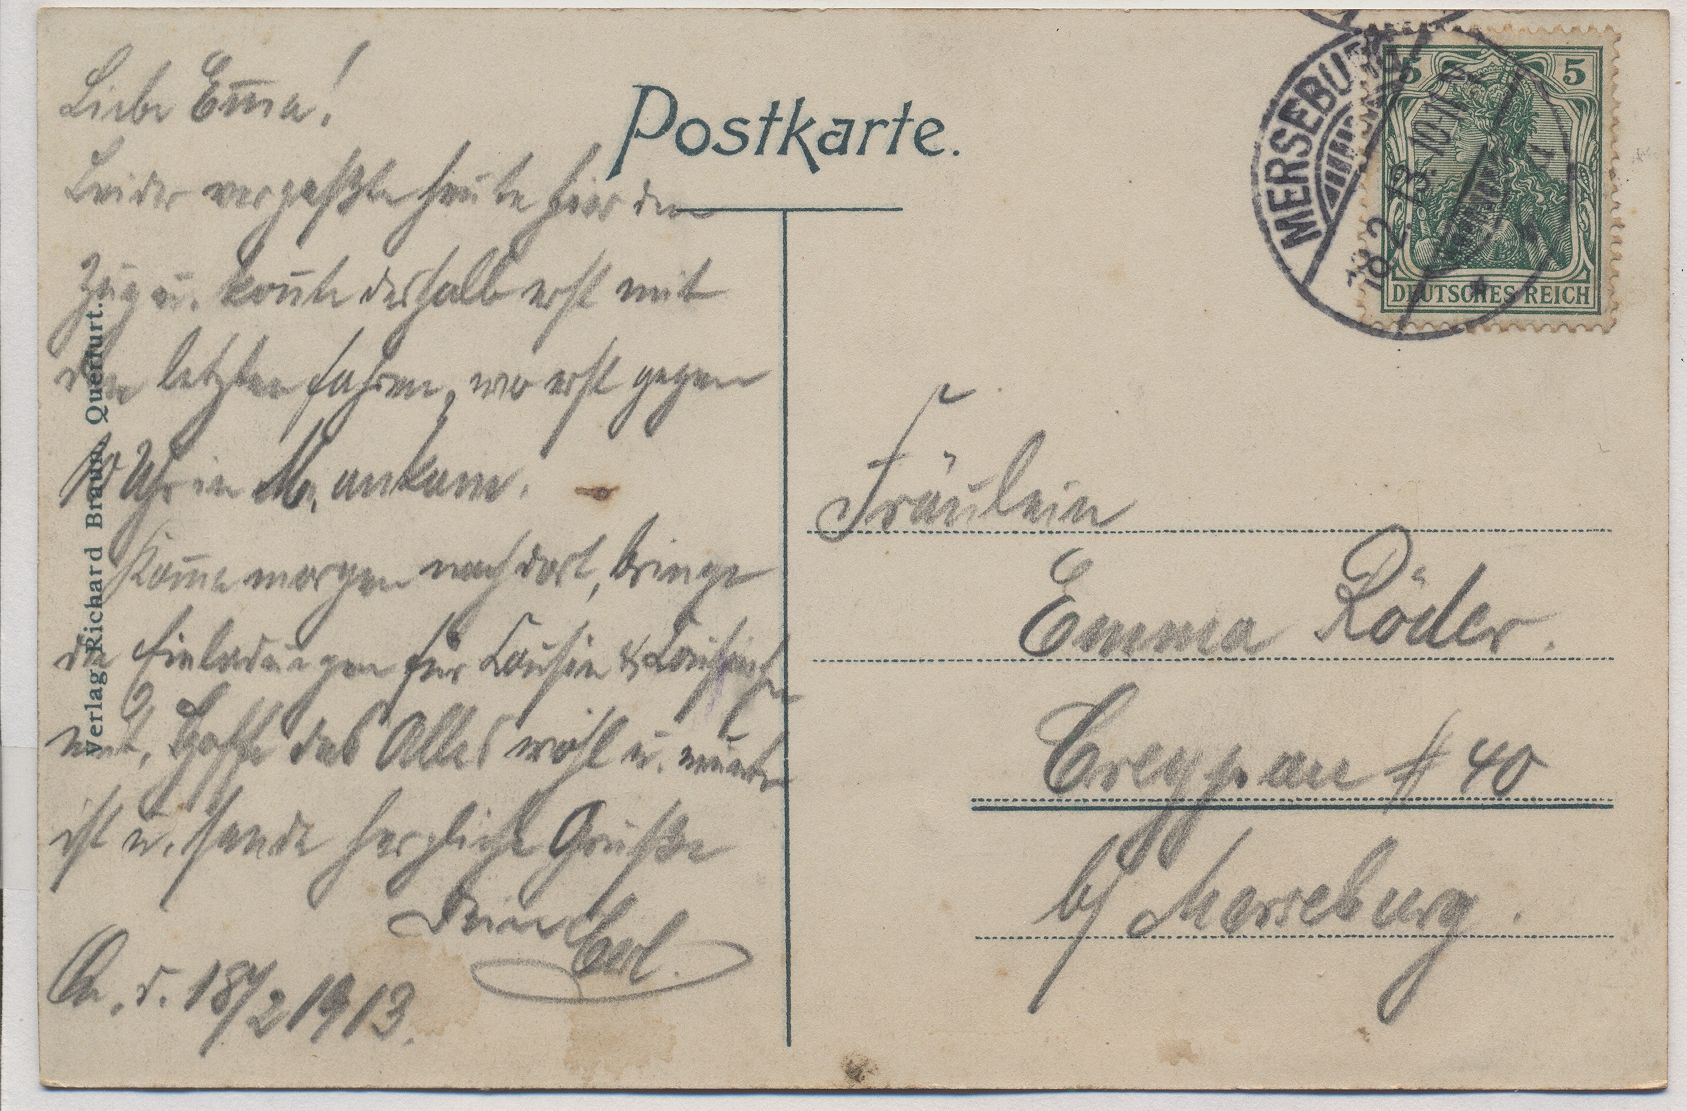 Postkarte.
MERSEBURG
18.2.13. 10-11
5 5
DEUTSCHES REICH
Verlag Richard Braun, Querfurt.
Liebe Em̅a!
Leider verpaßte heute hier den
Zug u. kon̅te deshalb erst mit
den letzten fahren, wo erst gegen
10 Uhr in M. ankam.
Kom̅e morgen nach dort, bringe
die Einladungen für Cousin & Cousinchen
mit. Hoffe das Alles wohl u. munter
ist u. sende herzliche Grüße
Dein Carl.
Qu. d. 18/2 1913.
Fräulein
Emma Röder.
Creypau # 40
b/ Merseburg.